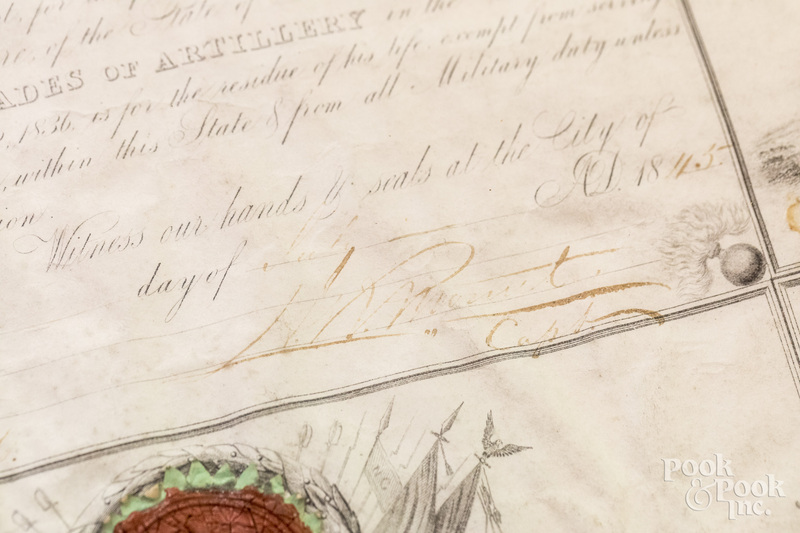 of the State of
ADES OF ARTILLERY in the
1836, is for the residue of his life, exempt from serving
within this State & from all Military duty unless
Witness our hands & seals at the City of
day of July A.D. 1845.
Capt
NG
POOK & POOK Inc.